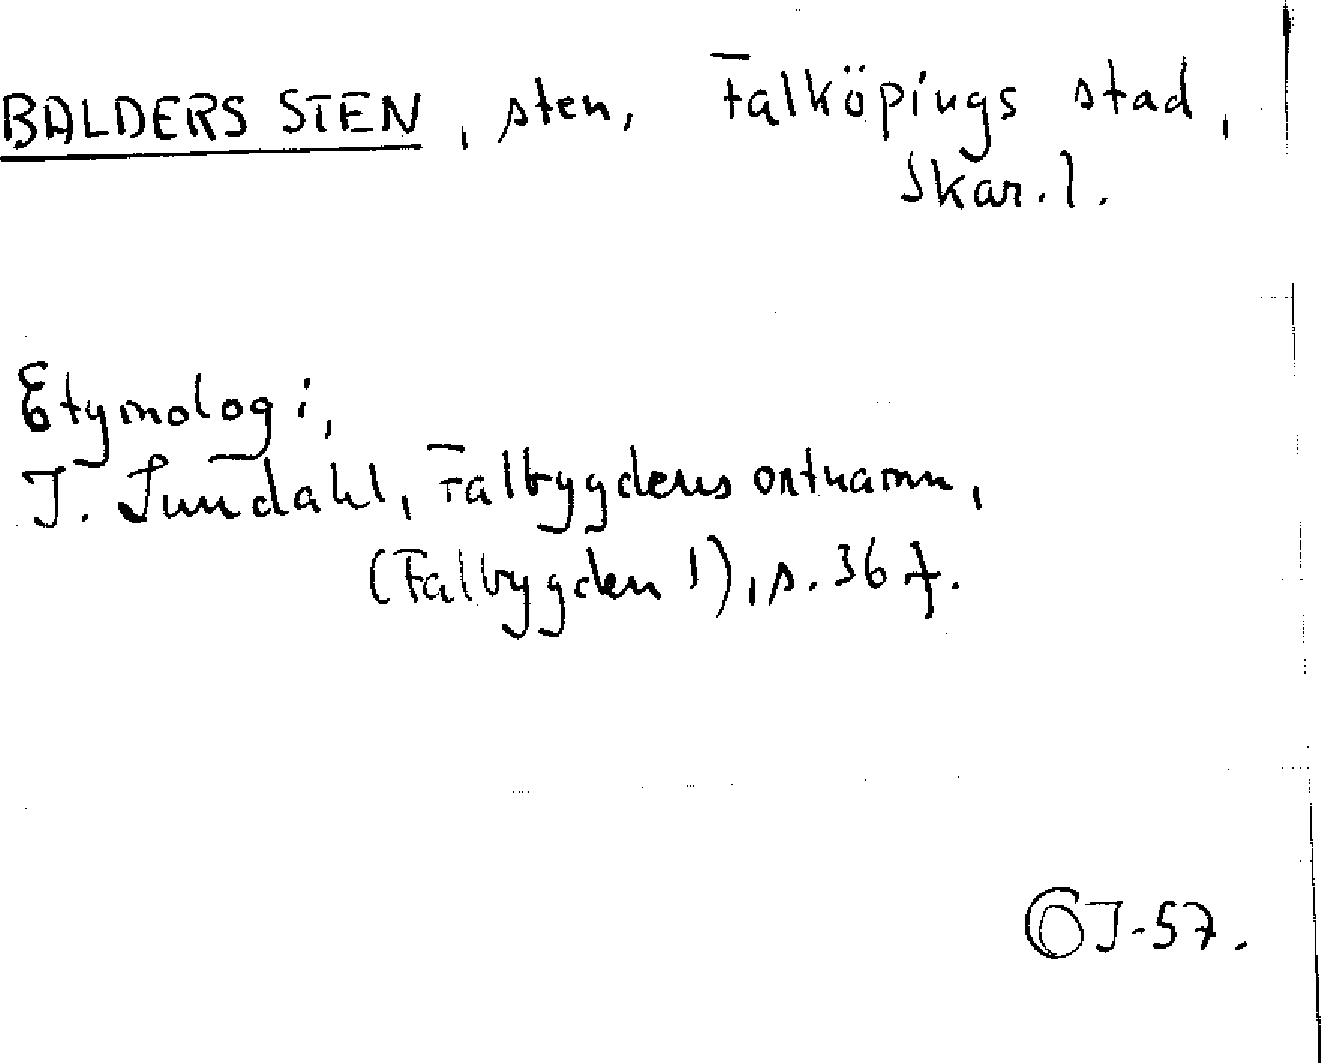 BALDERS STEN, sten, Falköpings stad,
Skar. l.
Etymologi,
I. Lundahl, Falbygdens ortnamn,
(Falbygden 1), s. 36 f.
GJ-57.